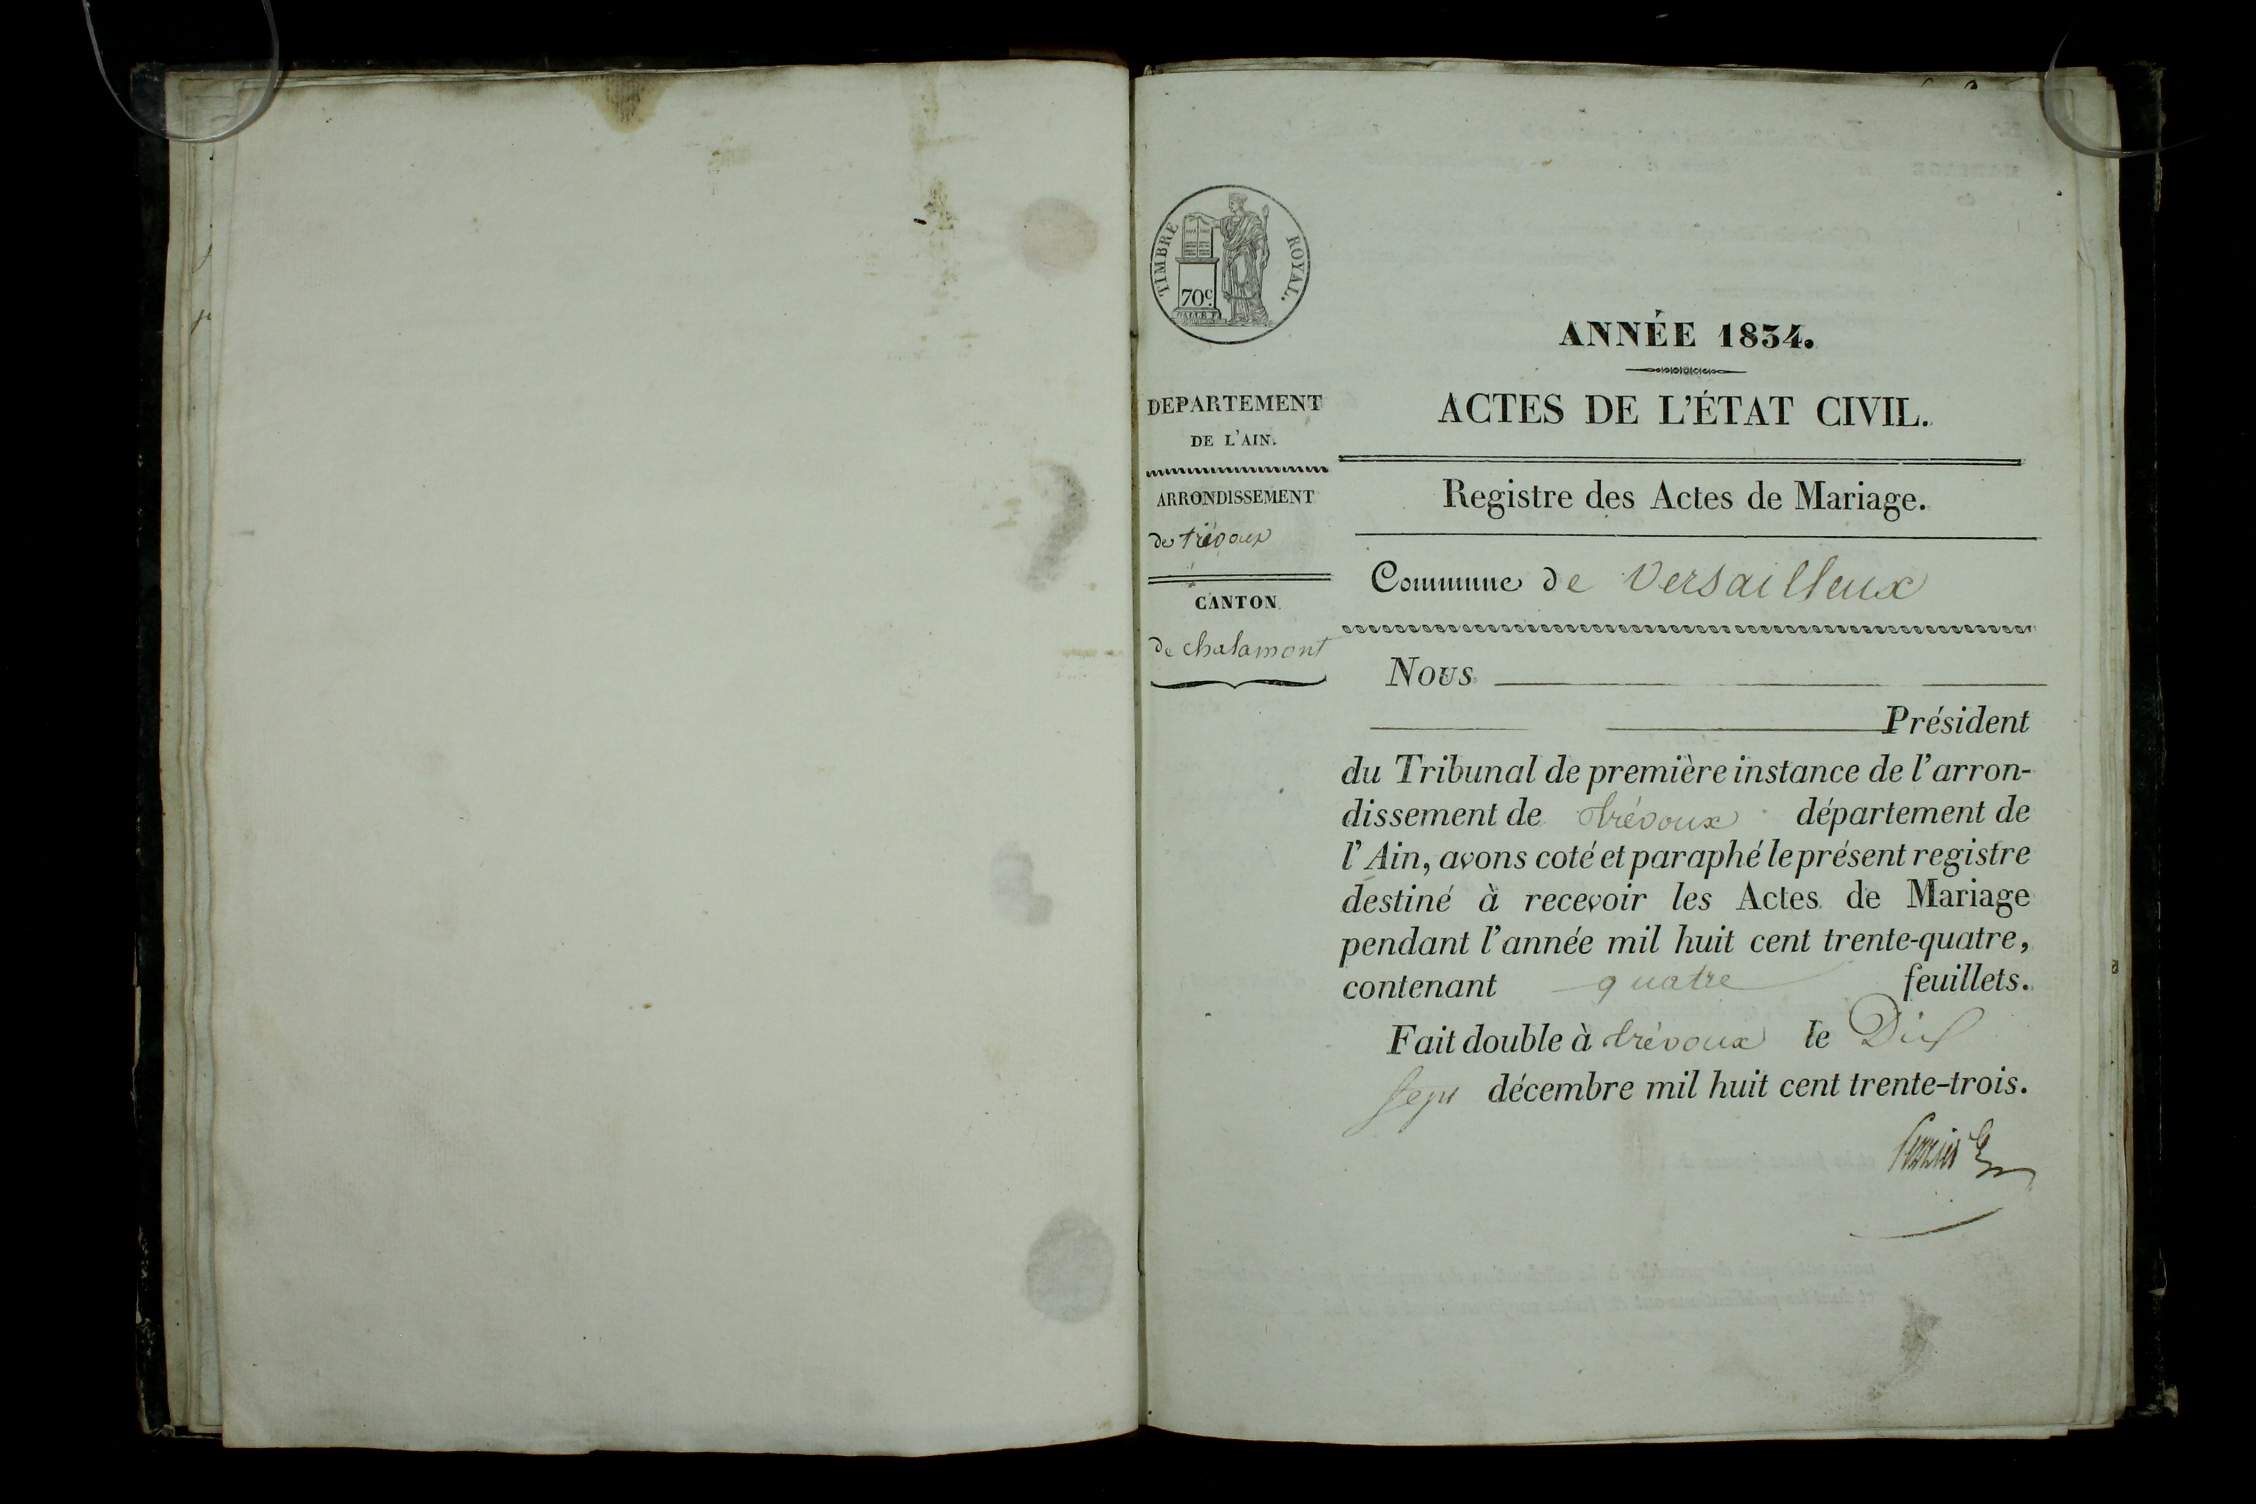 TIMBRE ROYAL.
70c.
ANNÉE 1834.
ACTES DE L'ÉTAT CIVIL.
DEPARTEMENT
DE L'AIN.
ARRONDISSEMENT
de trévoux
CANTON
de chalamont
Registre des Actes de Mariage.
Commune de Versailleux
Nous
Président
du Tribunal de première instance de l'arron-
dissement de trévoux département de
l'Ain, avons coté et paraphé le présent registre
destiné à recevoir les Actes de Mariage
pendant l'année mil huit cent trente-quatre,
contenant quatre feuillets.
Fait double à trévoux le Dix
Sept décembre mil huit cent trente-trois.